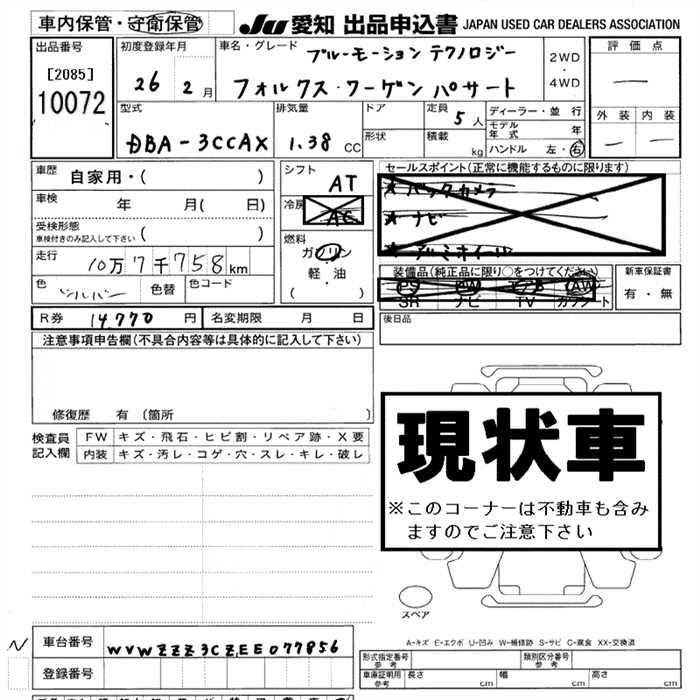 車内保管・守衛保管
JU 愛知 出品申込書 JAPAN USED CAR DEALERS ASSOCIATION
出品番号
[2085]
10072
初度登録年月
26 2月
車名・グレード
ブルーモーション テクノロジー
フォルクス・ワーゲン パサート
2WD
・
4WD
評価点
—
外装 内装
— —
型式
DBA-3CCAX
排気量
1.38 CC
ドア
形状
定員 5人
積載 kg
ディーラー・並行
モデル年式 年
ハンドル 左・右
車歴 自家用・( )
車検 年 月( 日)
受検形態
車検付きのみ記入して下さい ( )
走行 10万7千758km
色 シルバー 色替 色コード
シフト AT
冷房 AC
燃料
ガソリン
軽・油
( )
セールスポイント(正常に機能するものに限ります)
★バックカメラ
★ナビ
★アルミホイール
装備品(純正品に限り○をつけてください)
PS PW エアB AW
SR ナビ TV カワシート
新車保証書
有・無
R券 14,770円 名変期限 月 日
後日品
注意事項申告欄(不具合内容等は具体的に記入して下さい)
修復歴 有〔箇所 〕
検査員記入欄
FW キズ・飛石・ヒビ割・リペア跡・X要
内装 キズ・汚レ・コゲ・穴・スレ・キレ・破レ
現状車
※このコーナーは不動車も含み
ますのでご注意下さい
スペア
A-キズ E-エクボ U-凹み W-補修跡 S-サビ C-腐食 XX-交換済
N
車台番号 WVWZZZ3CZEE077856
登録番号
形式指定番号
参考
類別区分番号
参考
車庫証明用
参考
長さ cm 幅 cm 高さ cm